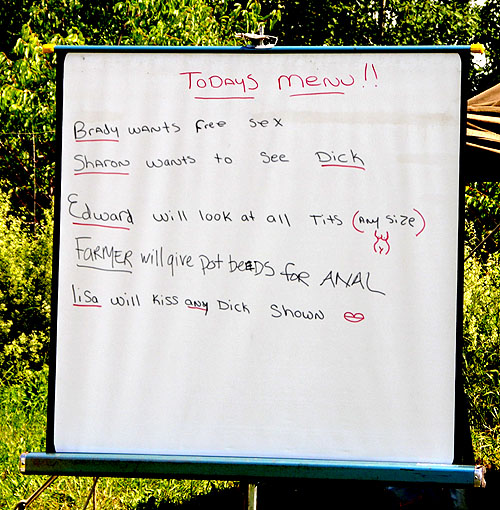 TODAYS MENU!!
Brady wants free sex
Sharon wants to see Dick
Edward will look at all Tits (Any size)
FARMER will give Pot beEDS for ANAL
lisa will kiss any Dick shown